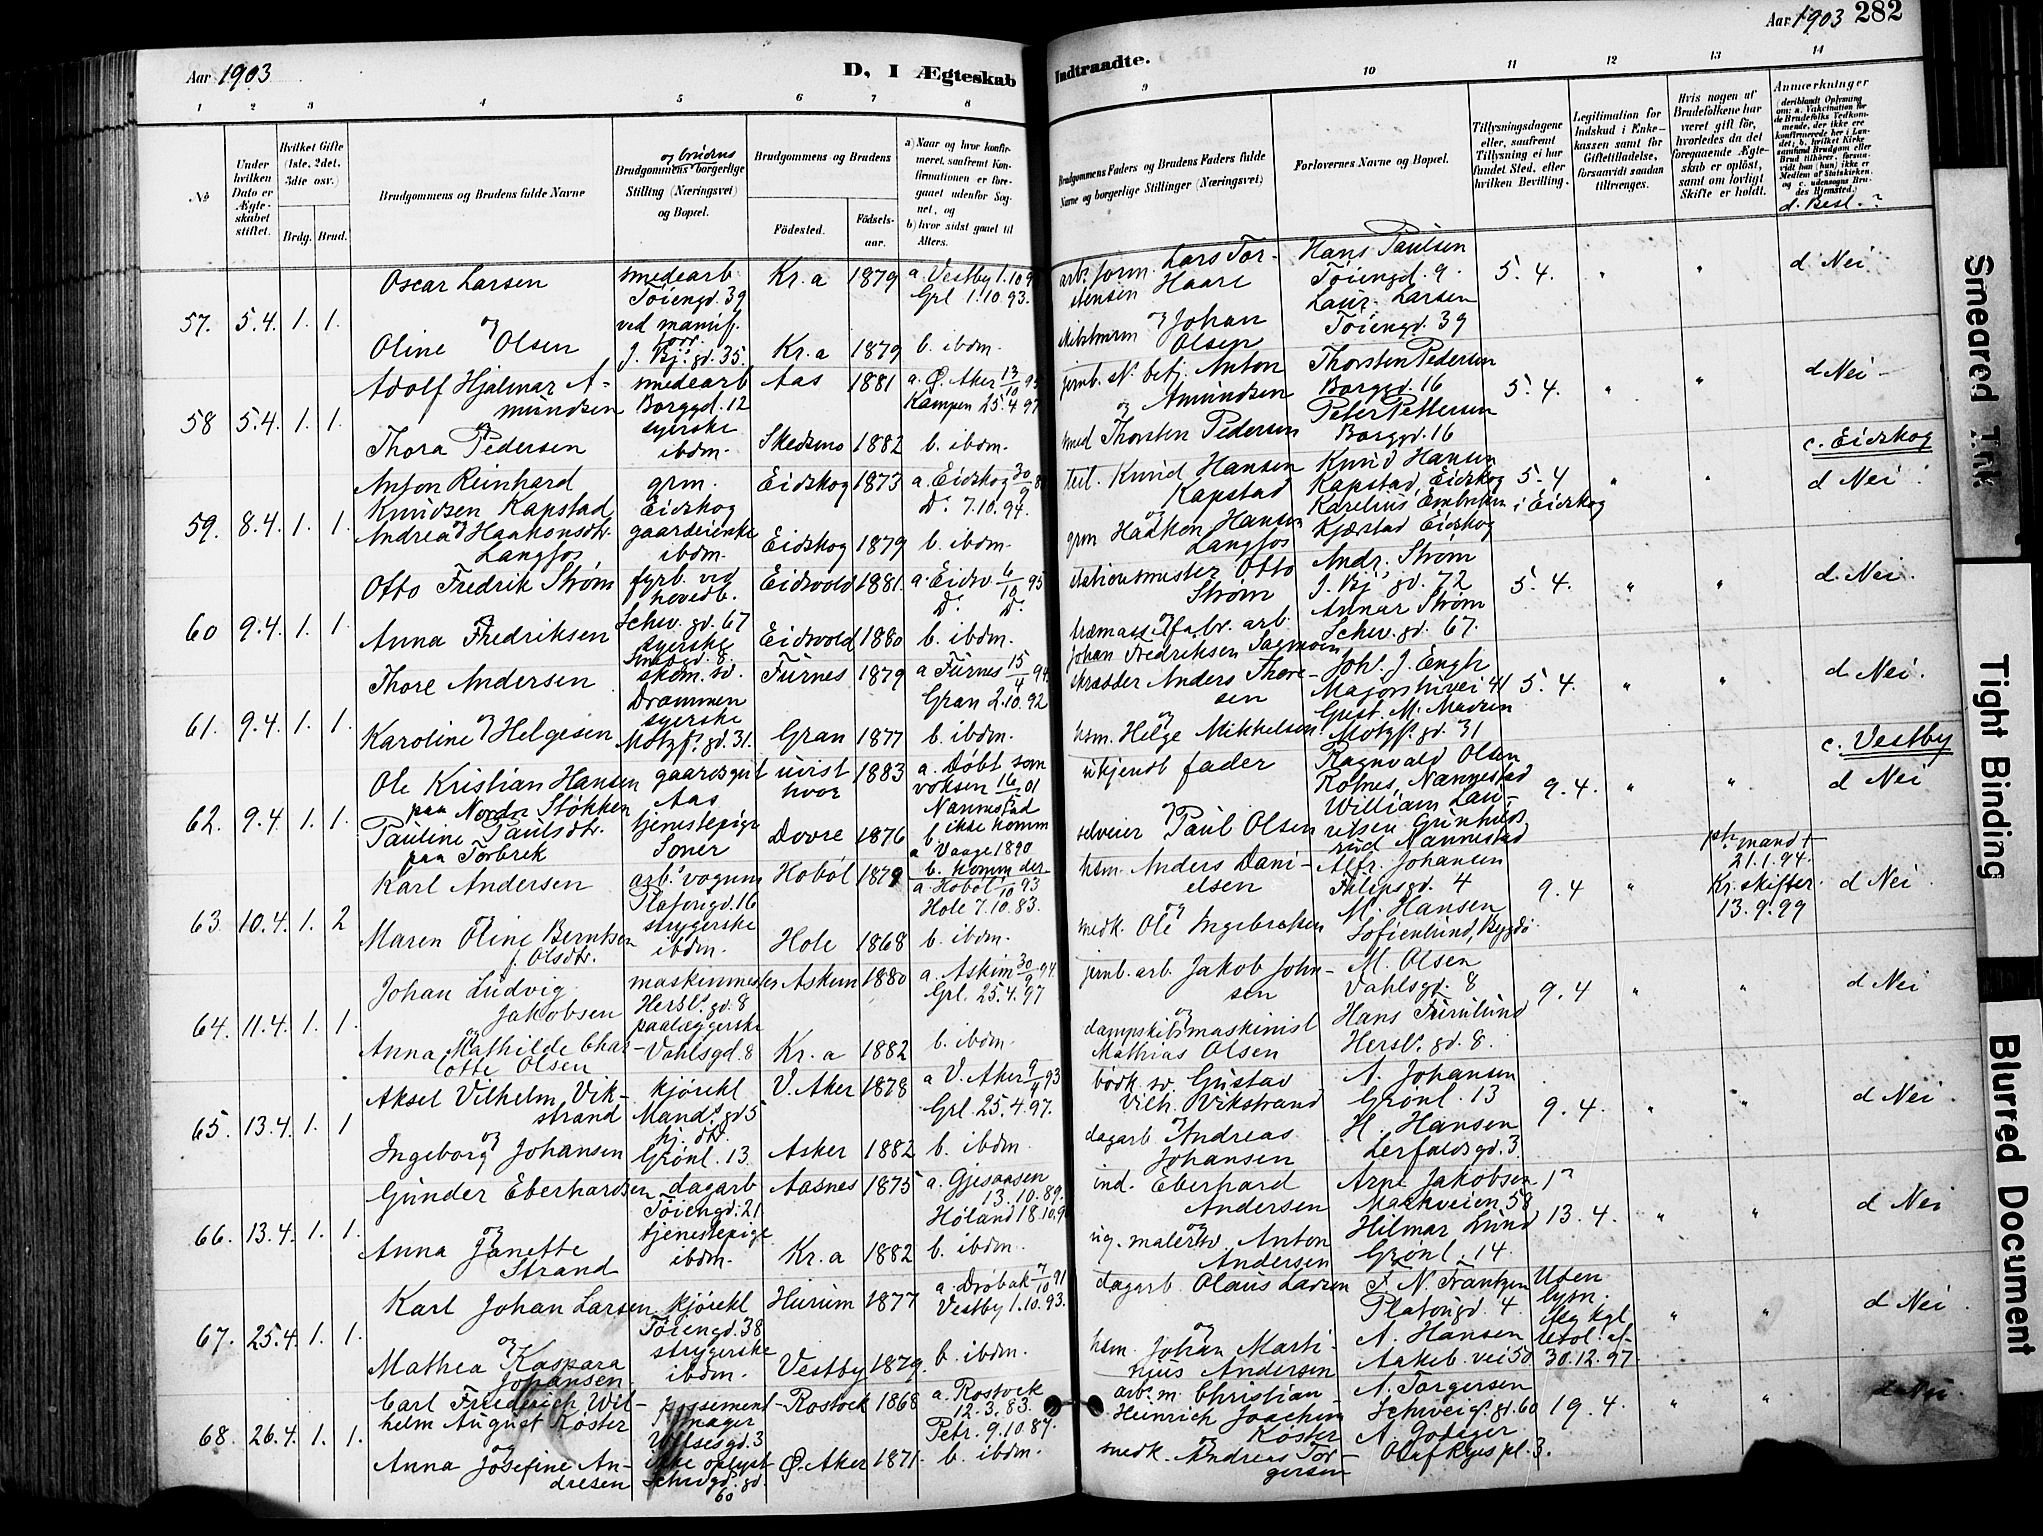 Aar 1903
D, I Ægteskab
Indtraadte.
Aar 1903 282
1 2 3 4 5 6 7 8 9 10 11 12 13 14
No
Under hvilken Dato er Ægteskabet stiftet.
Hvilket Gifte (1ste, 2det, 3die osv.)
Brdg. Brud.
Brudgommens og Brudens fulde Navne
Brudgommens og brudens borgerlige Stilling (Næringsvei) og Bopæl.
Brudgommens og Brudens
Födested.
Födselsaar.
a) Naar og hvor konfirmeret, saafremt Konfirmationen er foregaaet udenfor Sognet, og
b) hvor sidst gaaet til Alters.
Brudgommens Faders og Brudens Faders fulde Navne og borgerlige Stillinger (Næringsvei)
Forlovernes Navne og Bopæl.
Tillysningsdagene eller, saafremt Tillysning ei har fundet Sted, efter hvilken Bevilling.
Legitimation for Indskud i Enkekassen samt for Giftetilladelse, forsaavidt saadan tiltrænges.
Hvis nogen af Brudefolkene har været gift för, hvorledes da det foregaaende Ægteskab er oplöst, samt om lovligt Skifte er holdt.
Anmærkninger
(deriblandt Oplysning om: a. Vakcination for de Brudefolks Vedkommende, der ikke ere konfirmerede her i Landet; b. hvilket Kirkesamfund Brudgom eller Brud tilhörer, forsaavidt han (hun) ikke er Medlem af Statskirken, og c. udensogns Brudes Hjemsted.)
d. Besl. ?
57. 5.4. 1. 1.
Oscar Larsen
smedearb. Töiengd. 39
Kr.a 1879
a. Vestby 1.10.9
Grl 1.10.93.
arb. form. Lars Torstensen Haare
Hans Paulsen
Töiengd. 9.
Laur. Larsen
Töiengd. 39
5.4. " "
d Nei
og
Oline Olsen
ved manuf. forr.
J. Bj. gd. 35.
Kr.a 1879 b. ibdm.
og Johan Olsen
58 5.4. 1. 1.
Adolf Hjalmar Amundsen
smedearb
Borggd. 12
Aas 1881
a. Ö. Aker 13/10 95
Kampen 25.4.97
jernb. st. betj. Anton Amundsen
Thorsten Pedersen
Borggd. 16
Peter Pettersen
Borggd. 16
5.4. " "
d Nei
og
Thora Pedersen
syerske
ibdm.
Skedsmo 1882 b. ibdm.
og
smed Thorsten Pedersen
59. 8.4. 1. 1.
Anton Reinhard
Knudsen Kapstad
grm.
Eidskog
Eidskog 1873
a. Eidskog 30/9 8
Do. 7.10.94.
Knud Hansen
Kapstad
Knud Hansen
Kapstad, Eidskog
Karelius Embretsen
Kjærstad Eidskog
5.4
i Eidskog
" "
c. Eidskog
d Nei
og
Andrea Haakonsdtr.
Langfos
gaardeierske
ibdm.
Eidskog 1879 b. ibdm.
og
grm Haaken Hansen
Langfos
60 9.4. 1. 1.
Otto Fredrik Strøm
fyrb. ved hovedb.
Schw. gd. 67
Eidsvold 1881.
a. Eidsv. 6/10 95
Do. Do.
stationsmester Otto
Strøm
Andr. Strøm
J. Bj. gd. 72
Annar Strøm
Schw. gd. 67.
5.4. " "
d. Nei.
og
Anna Fredriksen
syerske
Smedgd. 8.
Eidsvold 1880 b. ibdm.
og
træmassefabr. arb.
Johan Fredriksen Sagmoen
61. 9.4. 1. 1.
Thore Andersen
skom. sv.
Drammen
Furnes 1879
a Furnes 15/4 94
Gran 2.10.92
skrædder Anders Thoresen
Johs. J. Engh
Majorstuvei 41
M. Madsen
Motzf. gd. 31
5.4. " "
d. Nei.
og
Karoline Helgesen
syerske
Motzfs. gd. 31.
Gran 1877 b. ibdm.
og
hsm. Helge Mikkelsen
62. 9.4. 1. 1.
Ole Kristian Hansen
paa Nordre Støkken
gaardsgut
Aas
uvist hvor
1883
a. Døbt som voksen 16/5 01
Nannestad
b ikke komm
ukjendt fader
Ragnvald Olsen
Rotnes, Nannestad
William Lauritsen Grinhusrud Nannestad
9.4. " "
c. Vestby
d Nei
Pauline Paulsdtr.
paa Torbrek
tjenestepige
Soner
Dovre 1876
a Vaage 1890
b. komm der
og
selveier Paul Olsen
63 10.4. 1. 2
Karl Andersen
arb. vognm
Platousgd. 16
Hobøl 1879
a. Hobøl 1/10 93
Hole 7.10.83.
hsm. Anders Danielsen
Alfr. Johansen
Filipsgd. 4
M. Hansen
Sofienlund, Bygdö
9.4 "
1ste mand +
21.1.94.
Kr. skifter.
13.9.99
d Nei
og
Maren Oline Berntsen
f. Olsdtr.
strygerske
ibdm.
Hole 1868 b. ibdm.
og
smedk. Ole Ingebretsen
64. 11.4. 1. 1.
Johan Ludvig
Jakobsen
maskinmester
Hersl. gd. 8
Askim 1880
a. Askim 30/9 94.
Grl. 25.4.97
jernb. arb. Jakob Johnsen
M. Olsen
Vahlsgd. 8
Hans Furulund
Hersl. gd. 8.
9.4 " "
d Nei
og
Anna Mathilde Charlotte Olsen
paalæggerske
Vahlsgd. 8
Kr.a 1882 b. ibdm.
og
dampskibsmaskinist
Mathias Olsen
65. 13.4. 1. 1
Aksel Vilhelm Vikstrand
kjörekl
Mandl. gd 5
V. Aker 1878
a V. Aker 9/4 93
Grl. 25.4.97.
bödk. sv. Gustav
Vilh. Vikstrand
A. Johansen
Grönl. 13
H. Hansen
Lerfaldsgd. 3
9.4. " "
d Nei.
og
Ingeborg Johansen
hj. dtr.
Grönl. 13.
Asker 1882 b. ibdm.
og
dagarb Andreas
Johansen
66. 13.4. 1. 1.
Gunder Eberhardsen
dagarb
Töiengd. 21
Aasnes 1875
a. Gjesaasen
13.10.89.
Høland 18.10.9
ind. Eberhard
Andersen
Arne Jakobsen
Markveien 58
Hilmar Lund
Grönl. 14.
13.4. " "
d Nei
og
Anna Janette
Strand
tjenestepige
ibdm.
Kr.a 1882 b. ibdm.
og
ug. malersv Anton
Andersen
67. 25.4. 1. 1.
Karl Johan Larsen
kjörekl
Töiengd. 38
Hurum 1877
a. Dröbak 7/10 91
Vestby 1.10.93.
dagarb Olaus Larsen
F. N. Frantzen
Platougd. 4
A. Hansen
Aakeb. vei 50
Uden
lysn.
kgl
resol. af
30.12.97.
" "
d Nei.
og
Mathea Kaspara
Johansen
strygerske
ibdm.
Vestby 1879. b. ibdm.
og
hsm. Johan Martinius Andersen
68. 26.4. 1. 1.
Carl Friederich Wilhelm August Köster
possementmager
Uelsesgd. 3
Rostock 1868
a. Rostock
12.3.83.
Petr. 9.10.87.
arb. m. Christian
Heinrich Joachim
Köster
A. Torgersen
Schweigs. gd. 60
A. Godager
Olaf Ryes pl. 3.
19.4. " "
d Nei
og
Anna Josefine Andresen
ikke oplyst
Schwgd. gd. 60
Ö. Aker 1871. b. ibdm.
og
smedk. Andreas Torgersen
Smeared Ink
Tight Binding
Blurred Document